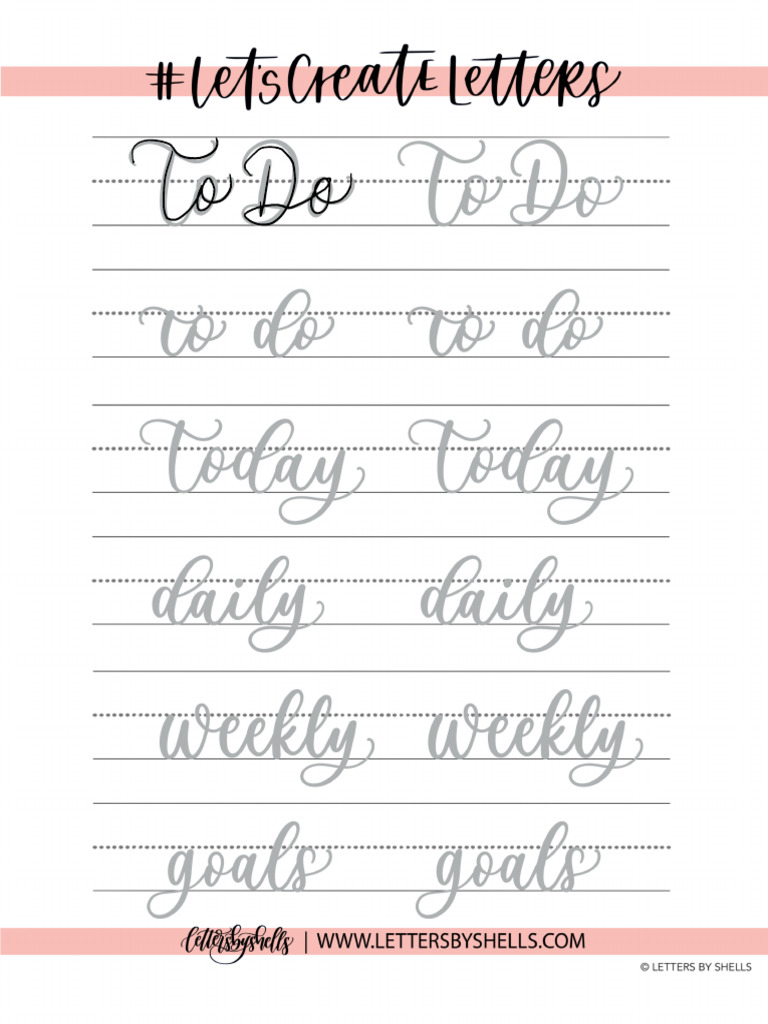 #Let'sCreateLetters
To Do To Do
to do to do
today today
daily daily
weekly weekly
goals goals
lettersbyshells | WWW.LETTERSBYSHELLS.COM
© LETTERS BY SHELLS